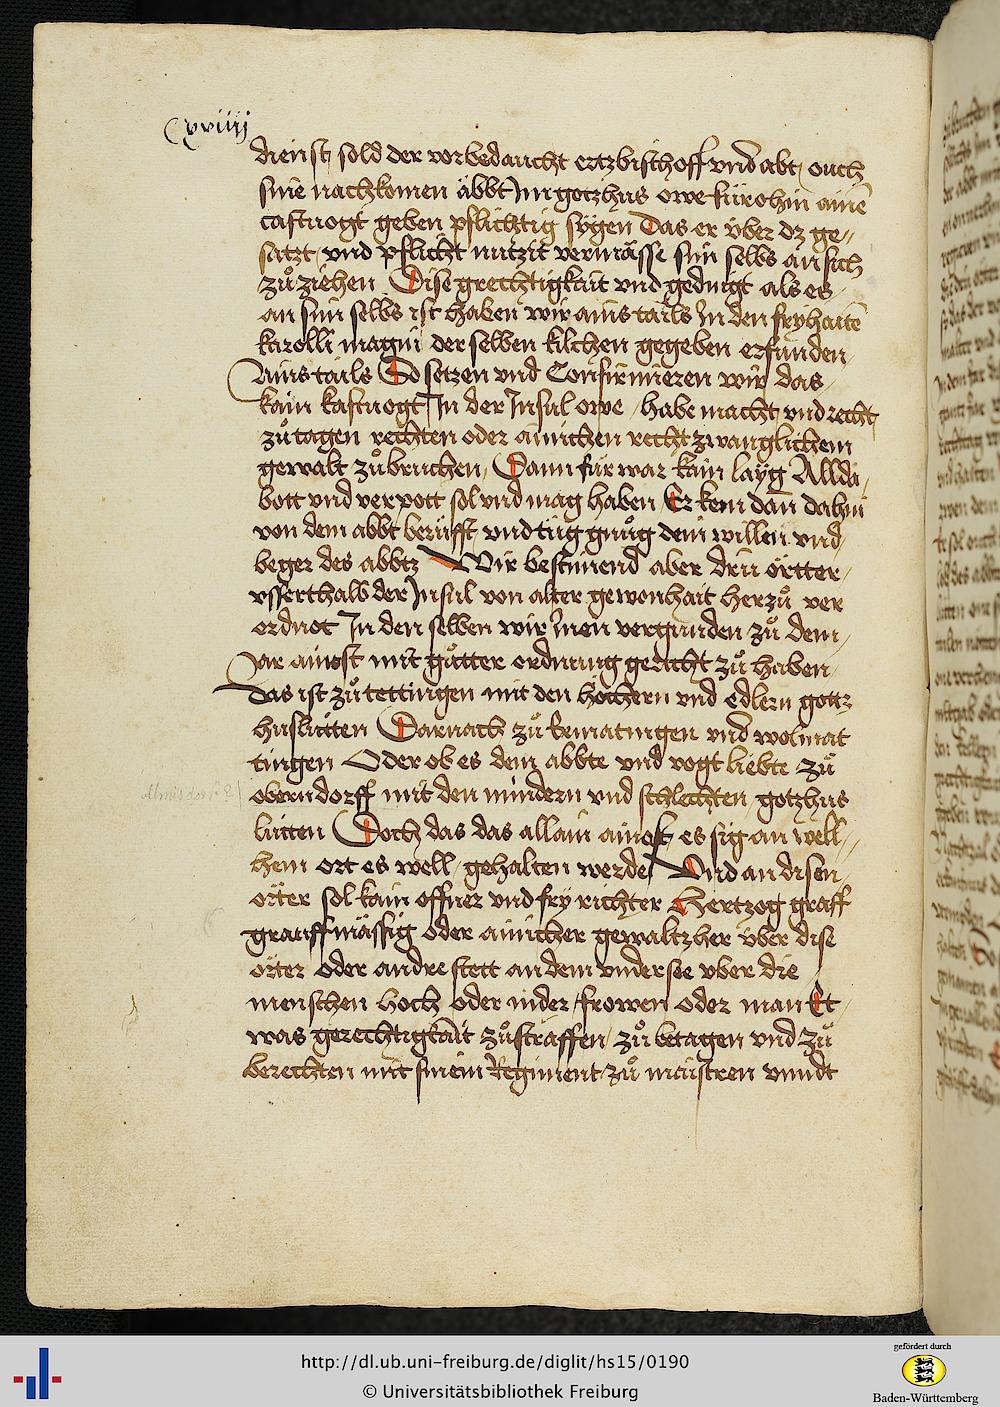 Cxviiij
dienst sold der vorbedaucht ertzbischoff vnd abt / ouch
sine nachkomen äbbt Jm gotzhus owe fürohin ainē
castuogt geben pflichtig sygen Das er über dz ge„
satzt vnd pflicht nutzit vermässe sin selbs an sich
zuͦ ziehen Dise grechtigkait vnd gedingt als es
an sim selbs ist haben wir ains tails In den fryhaitē
karolli magni der selben kilchen gegeben erfunden
Ains tails So setzen vnd Confirmieren wir das
kain kastuogt In der Insul owe / habe macht vnd recht
zuͦ tagen rechten oder ainichen recht zwanglichem
gewalt zuͦ bruchen / Dann für war kain layg Allda
bott vnd verpott sol vnd mag haben Er kem dan̄ dahin
von dem abbt berüfft vnd tüg gnuͦg dem willen vnd
beger des abbtz Wir bestimend aber drü örtter
vsserthalb der Insul von alter gewonhait herzuͦ ver
ordnot In den selben wir Inen vergunden zuͦ dem
Jar ainost mit guͦtter ordnung gericht zuͦ haben
Das ist zuͦ tettingen mit den höchern vnd edlern gotz
huslütten Darnach zuͦ ermatingen vnd wolmat
tingen Oder ob es dem abbte vnd vogt liebte zuͦ
Almisdorf?
oberndorff mit den mindern vnd schlechten gotzhus
lütten Doch das das allain ainost es sig an well„
hem ort es well / gehalten werde Und an disen
örter sol kain offner vnd fry richter Hertzog graff
grauffmässig oder ainicher gewaltzher über dise
örter oder andre stett an dem vndersee vber die
menschen hoch oder nider / frowen oder man Et
was gerechtigkait zuͦ straffen / zuͦ betagen vnd zuͦ
berechten mit sinem Regiment zuͦ maistren vnndt
http://dl.ub.uni-freiburg.de/diglit/hs15/0190
© Universitätsbibliothek Freiburg
gefördert durch
Baden-Württemberg